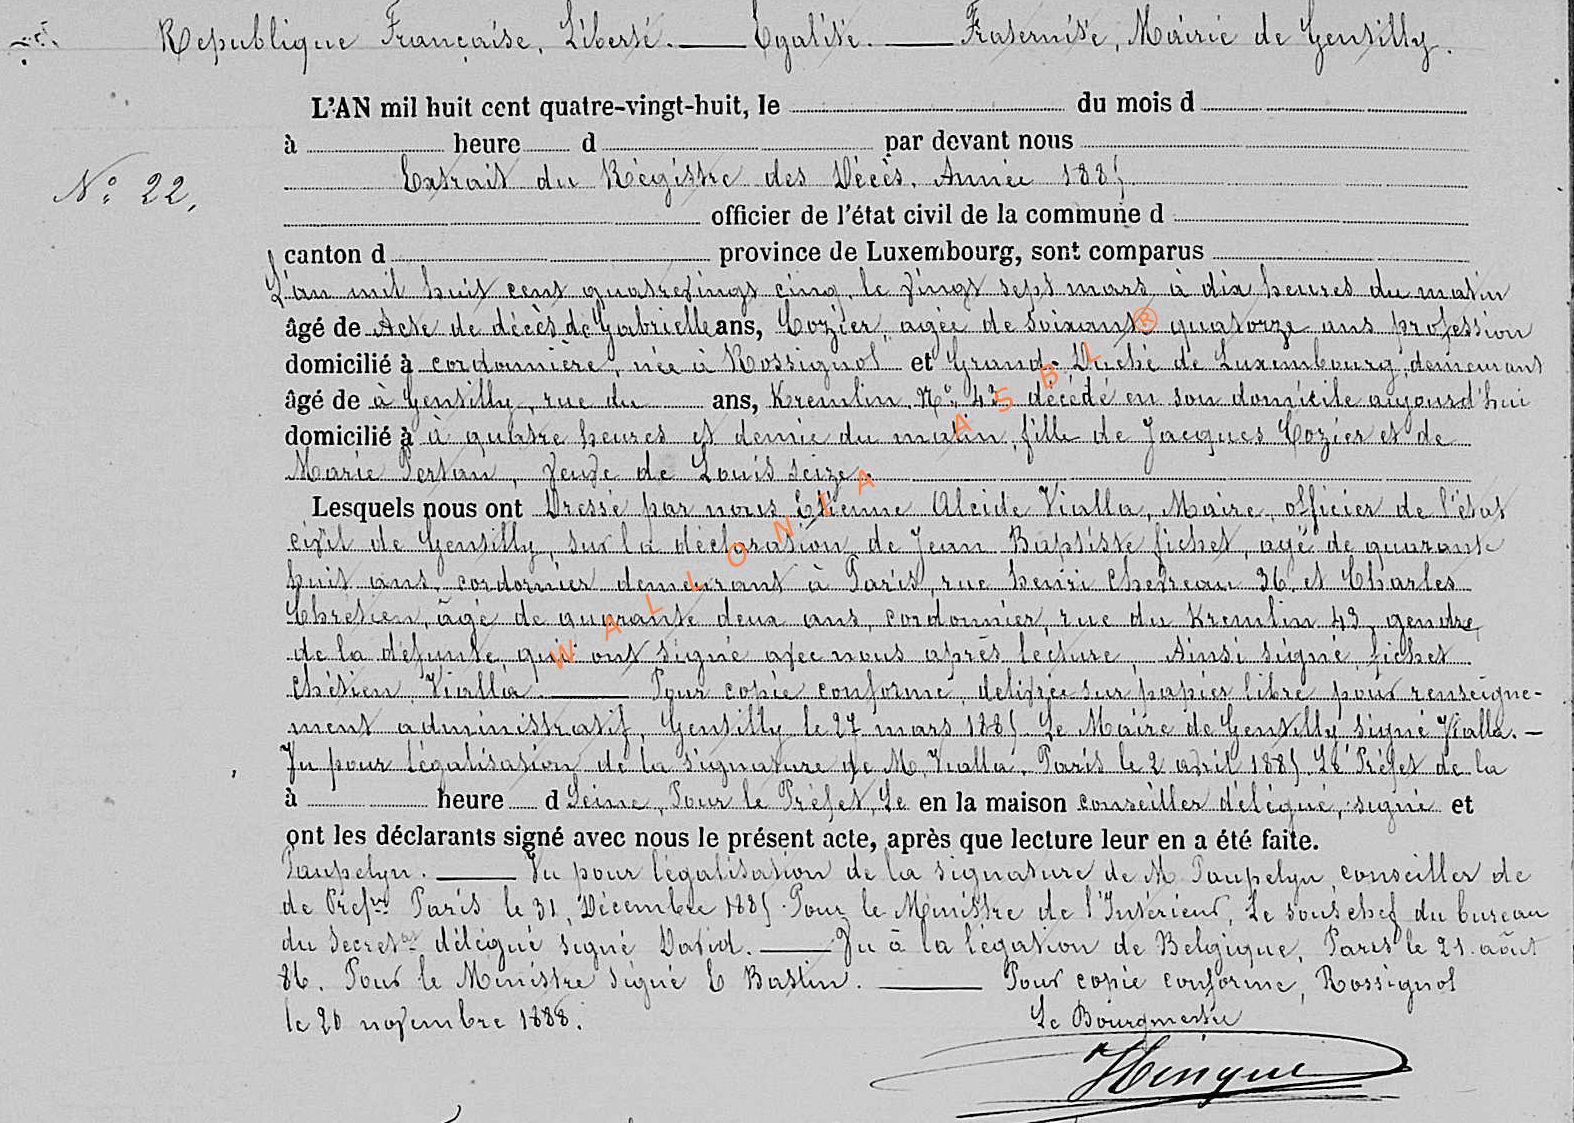 Republique Française, Liberté. — Egalité. — Fraternité, Mairie de Gentilly.
L'AN mil huit cent quatre-vingt-huit, le du mois d
à heure d par devant nous
N° 22, Extrait du Régistre des Décès. Année 1885
officier de l'état civil de la commune d
canton d province de Luxembourg, sont comparus
L'an mil huit cent quatrevingt cinq, le vingt sept mars à dix heures du matin
âgé de Acte de décès de Gabrielle ans, Cozier agée de soixante quatorze ans profession
domicilié à cordonnière, née à Rossignol et Grand-Duché de Luxembourg, demeurant
âgé de à Gentilly, rue du ans, Kremlin N° 43 décédé en son domicile aujourd'hui
domicilié à à quatre heures et demie du matin, fille de Jacques Cozier et de
Marie Pertan, veuve de Louis seize.
Lesquels nous ont Dressé par nous Etienne Alcide Vialla, Maire, officier de l'état
civil de Gentilly, sur la déclaration de Jean Baptiste fichet, agé de quarante
huit ans, cordonnier demeurant à Paris, rue henri Chevreau 36 et Charles
Chretien, âgé de quarante deux ans, cordonnier, rue du Kremlin 43, gendre
de la défunte, qui ont signé avec nous après lecture. Ainsi signé, fichet
Chétien, Vialla. — Pour copie conforme, delivrée sur papier libre pour renseigne-
ment administratif, Gentilly le 27 mars 1885. Le Maire de Gentilly signé Vialla. —
Vu pour légalisation de la signature de M. Vialla. Paris le 2 avril 1885. Le Préfet de la
à heure d Seine, Pour le Préfet, Le en la maison conseiller délégué, signé et
ont les déclarants signé avec nous le présent acte, après que lecture leur en a été faite.
Paupelyn. — Vu pour légalisation de la signature de M Paupelyn conseiller de
de Préfre Paris le 31, Décembre 1885. Pour le Ministre de l'Intérieur, Le sous chef du bureau
du Secret délégué signé David. — Vu à la légation de Belgique, Paris le 21 août
86. Pour le Ministre signé E Bastin. — Pour copie conforme, Rossignol
le 20 novembre 1888. Le Bourgmestre
Hinque
WALLONIA ASBL®